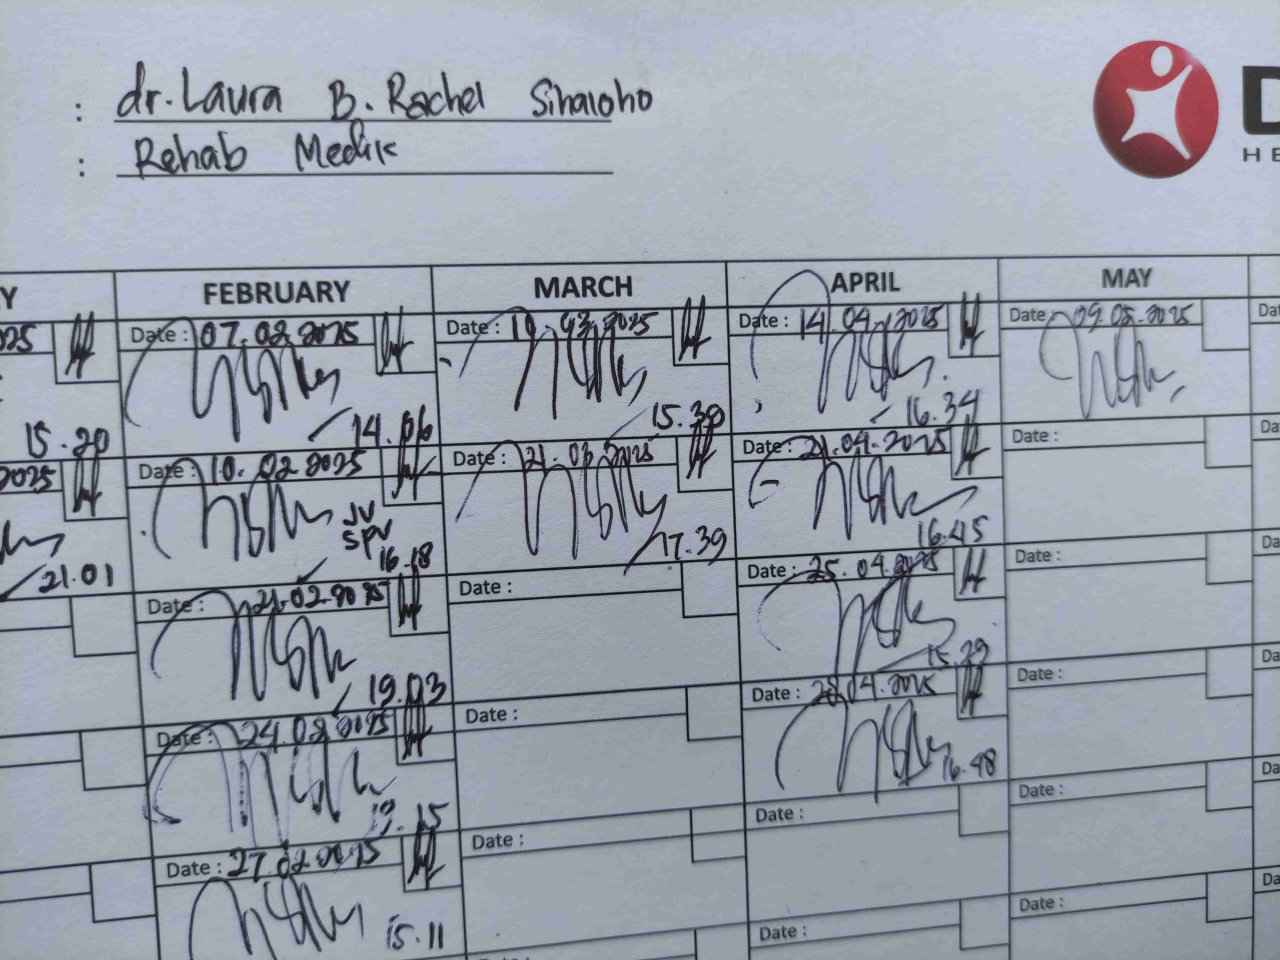 : dr. Laura B. Rachel Sihaloho
: Rehab Medik
D
HE
Y FEBRUARY MARCH APRIL MAY
025 Date : 07.02.2025 Date : 2025 Date : 14.04.2025 Date 2025 Da
15.20 14.06 15.39 16.34
2025 Date : 10.02.2025 Date : 21.03.2025 Date : 21.04.2025 Date : Da
JV
SPV
21.01 16.18 17.39 16.45
Date : 21.02.2025 Date : Date : 25.04.2025 Date : Da
19.03 15.29
Date : 24.02.2025 Date : Date : 28.04.2025 Date : Da
19.15 16.48
Date : 27.02.2025 Date : Date : Date : Da
15.11
Date : Date : Date : Da